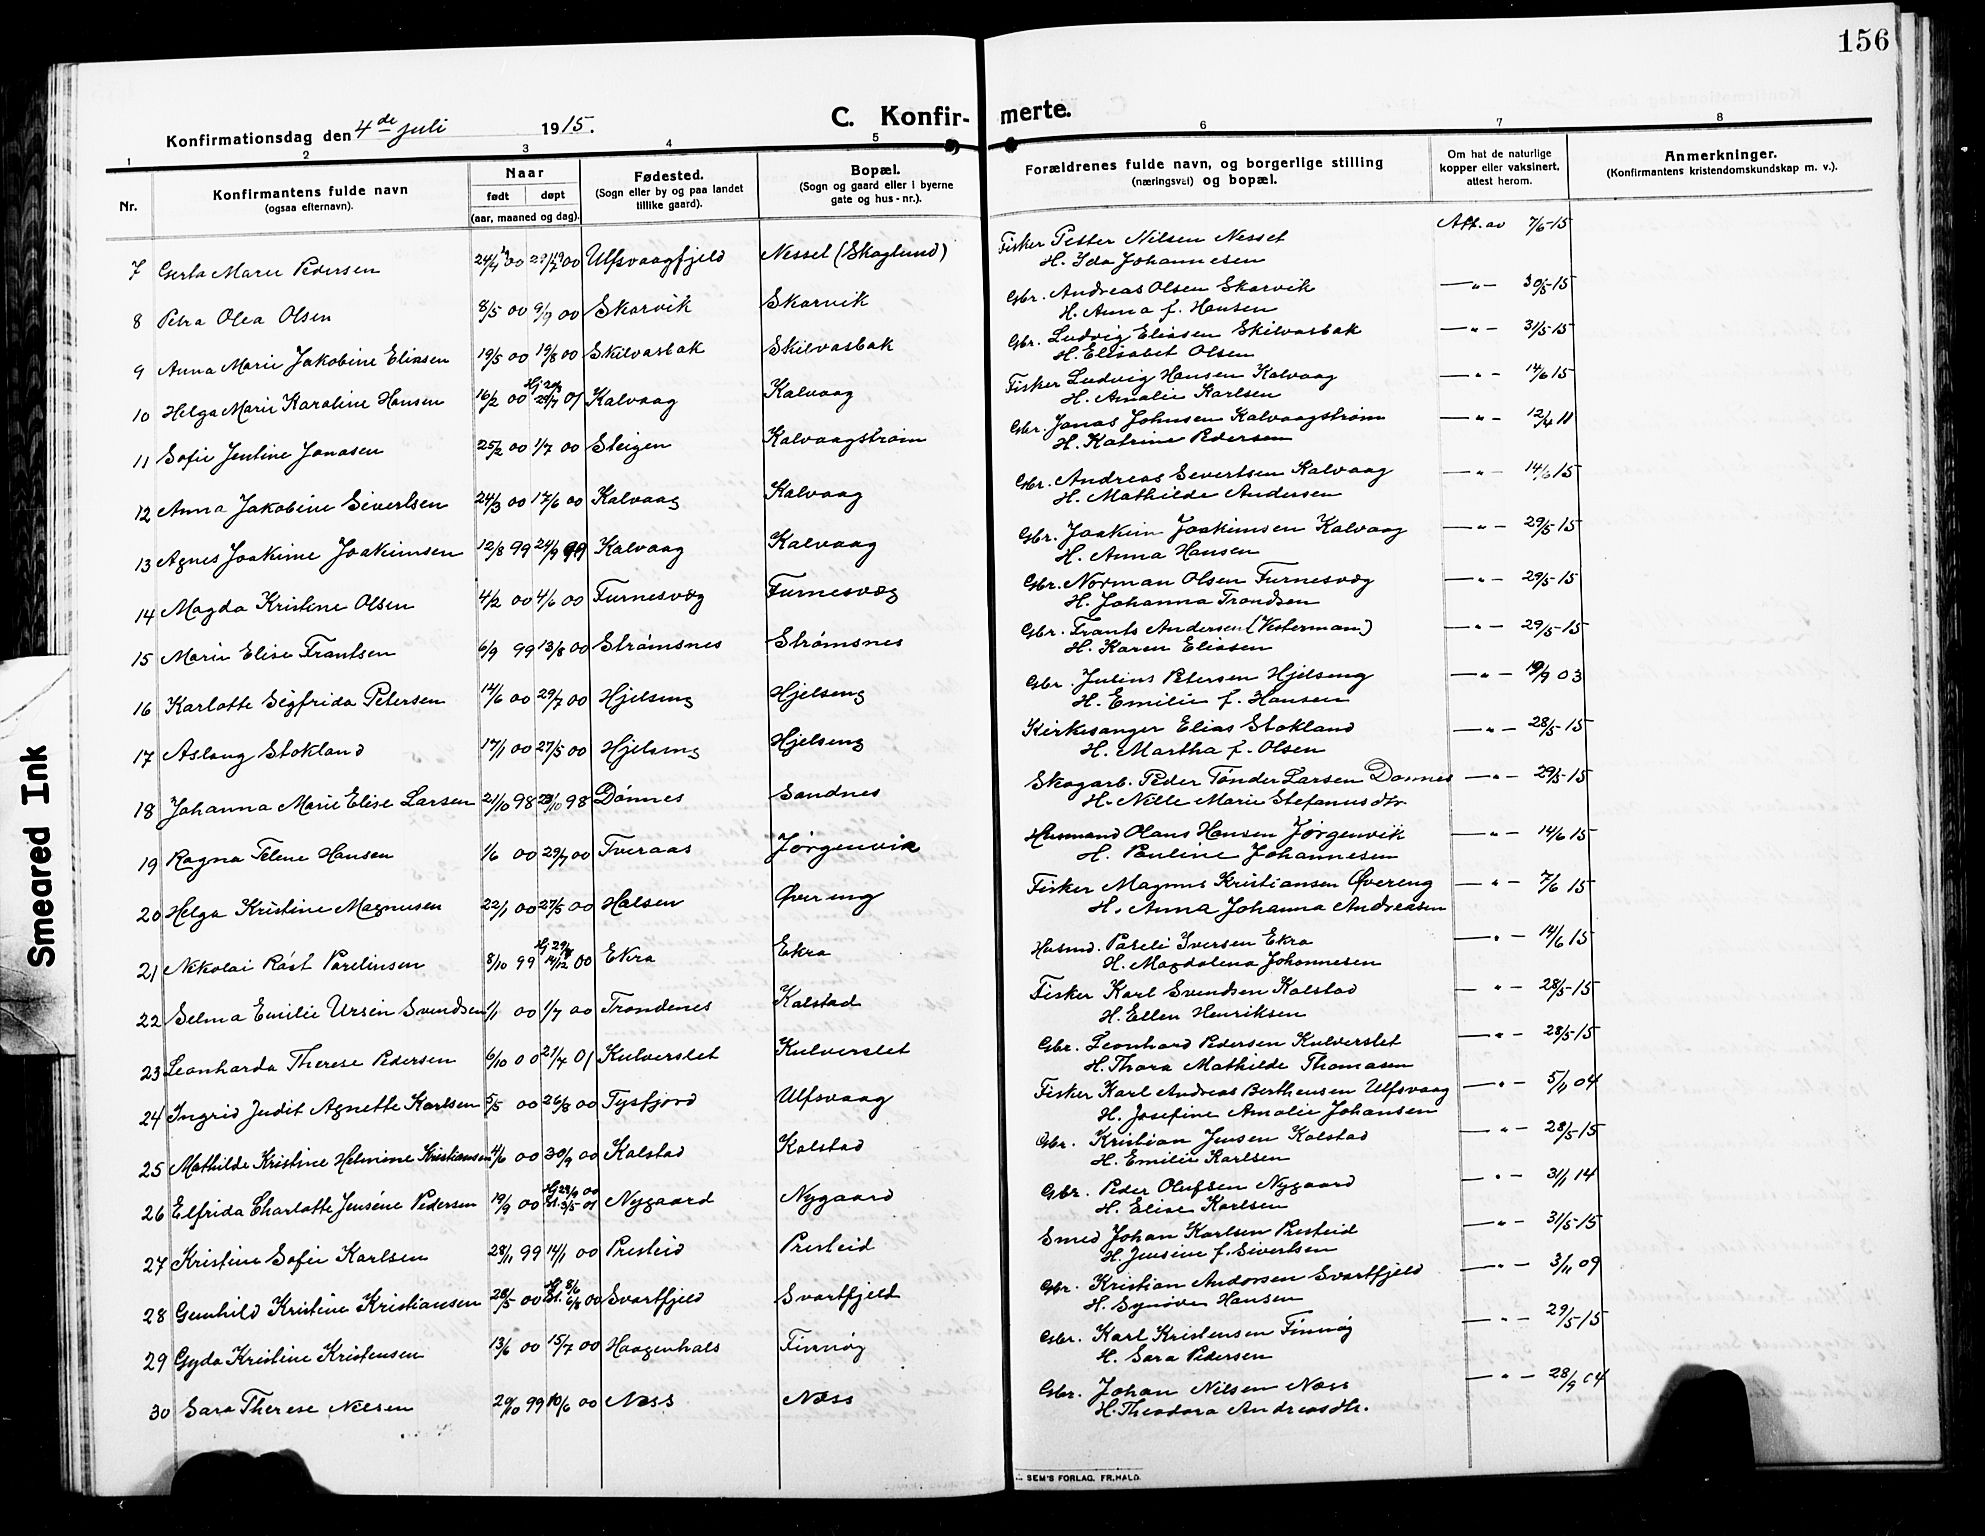 156
C. Konfir- merte.
Konfirmationsdag den 4de juli 1915.
1 2 3 4 5 6 7 8
Nr.
Konfirmantens fulde navn
(ogsaa efternavn).
Naar
født døpt
(aar, maaned og dag).
Fødested.
(Sogn eller by og paa landet
tillike gaard).
Bopæl.
(Sogn og gaard eller i byerne
gate og hus - nr.).
Forældrenes fulde navn, og borgerlige stilling
(næringsvei) og bopæl.
Om hat de naturlige
kopper eller vaksinert,
attest herom.
Anmerkninger.
(Konfirmantens kristendomskundskap m. v.).
7 Gerta Marie Pedersen 24/4 1900 29/7 1900 Ulfsvaagfjeld Nesset (Skoglund) Fisker Petter Nilsen Nesset Att. av 7/6-15
H. Ida Johannesen
8 Petra Olea Olsen 8/5 00 9/9 00 Skarvik Skarvik Gbr. Andreas Olsen Skarvik —"— 30/5-15
H. Anna f. Hansen
9 Anna Marie Jakobine Eliasen 19/5 00 19/8 00 Skilvasbak Skilvasbak Gbr. Ludvig Eliasen Skilvasbak —"— 31/5-15
H. Elisabet Olsen
10 Helga Marie Karoline Hansen 16/2 00 01 Kalvaag Kalvaag Fisker Ludvig Hansen Kalvaag —"— 14/6 15
H. Amalie Karlsen
11 Sofie Jentine Jonasen 25/2 00 1/7 00 Steigen Kalvaagstrøm Gbr. Jonas Johnsen Kalvaagstrøm —"— 12/4 11
H. Katrine Pedersen
12 Anna Jakobine Sivertsen 24/3 00 17/6 00 Kalvaag Kalvaag Gbr. Andreas Severtsen Kalvaag —"— 14/6 15
H. Mathilde Andersen
13 Agnes Joakime Joakimsen 12/8 99 24/9 99 Kalvaag Kalvaag Gbr. Joakim Joakimsen Kalvaag —"— 29/5-15
H. Anna Hansen
14 Magda Kristine Olsen 4/2 00 4/6 00 Furnesvæg Furnesvæg Gbr. Norman Olsen Furnesvæg —"— 29/5-15
H. Johanna Trondsen
15 Marie Elise Frantsen 6/9 99 13/8 00 Strømsnes Strømsnes Gbr. Frants Andersen (Vesterman) —"— 29/5-15
H. Karen Eliasen
16 Karlotte Sigfrida Petersen 14/6 00 29/7 00 Hjelseng Hjelseng Gbr. Julius Petersen Hjelseng —"— 19/9 03
H. Emilie f. Hansen
17 Aslaug Stokland 17/1 00 27/5 00 Hjelseng Hjelseng Kirkesanger Elias Stokland —"— 28/5-15
H. Martha f. Olsen
18 Johanna Marie Elise Larsen 21/10 98 98 Dønnes Sandnes Skogarb. Peder Tønder Larsen Dønnes —"— 29/5-15
H. Nille Marie Stefanusdtr.
19 Ragna Telene Hansen 1/6 00 29/7 00 Tveraas Jørgenvik Husmand Olaus Hansen Jørgenvik —"— 14/6 15
H. Pauline Johannesen
20 Helga Kristine Magnusen 22/1 00 27/5 00 Halsen Øvereng Fisker Magnus Kristiansen Øvereng —"— 7/6 15
H. Anna Johanna Andreasen
21 Nikolai Røst Parelinsen 8/10 99 14/12 00 Ekra Ekra Husmd. Pareli Iversen Ekra —"— 14/6 15
H. Magdalena Johannesen
22 Selma Emilie Ursin Svendsen 1/1 00 1/7 00 Trondenes Kalstad Fisker Karl Svendsen Kalstad —"— 28/5-15
H. Ellen Henriksen
23 Leonharda Therese Pedersen 6/10 00 21/7 01 Kulverslet Kulverslet Gbr. Leonhard Pedersen Kulverslet —"— 28/5-15
H. Thora Mathilde Thomasen
24 Ingrid Judit Agnette Karlsen 5/5 00 26/8 00 Tysfjord Ulfsvaag Fisker Karl Andreas Berthensen Ulfsvaag —"— 5/11 04
H. Josefine Amalie Johansen
25 Mathilde Kristine Helmine Kristiansen 4/6 00 30/9 00 Kalstad Kalstad Gbr. Kristian Jensen Kalstad —"— 28/5-15
H. Emilie Karlsen
26 Elfrida Charlotte Jensine Pedersen 19/9 00 Hj 29/9 00 St. 3/5 01 Nygaard Nygaard Gbr. Peder Olufsen Nygaard —"— 3/1 14
H. Elise Karlsen
27 Kristine Sofie Karlsen 28/11 99 14/1 00 Presteid Presteid Smed Johan Karlsen Presteid —"— 31/5-15
H. Jensine f. Sivertsen
28 Gunhild Kristine Kristiansen 28/5 00 Hj 8/6 St. 6/8 00 Svartfjeld Svartfjeld Gbr. Kristian Andorsen Svartfjeld —"— 3/11 09
H. Synøve Hansen
29 Gyda Kristine Kristensen 13/6 00 15/7 00 Haagenhals Finnøy Gbr. Karl Kristensen Finnøy —"— 29/5-15
H. Sara Pedersen
30 Sara Therese Nilsen 29/10 99 10/6 00 Næss Næss Gbr. Johan Nilsen Næss —"— 28/9 04
H. Theodora Andreasdtr.
SEM'S FORLAG, FR.HALD.
Smeared Ink